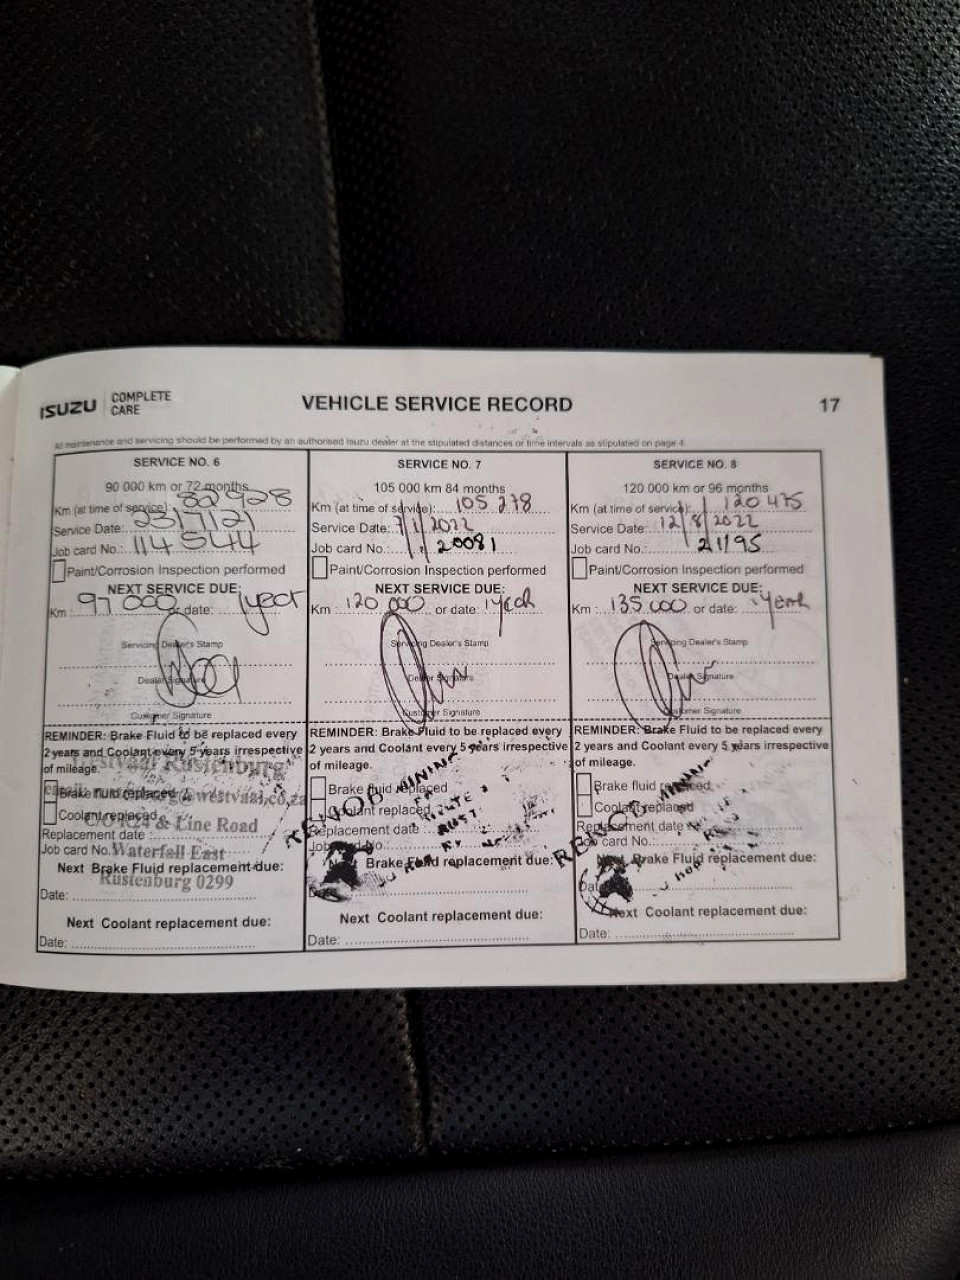 ISUZU COMPLETE CARE
VEHICLE SERVICE RECORD
17
All maintenance and servicing should be performed by an authorised Isuzu dealer at the stipulated distances or time intervals as stipulated on page 4.
SERVICE NO. 6
90 000 km or 72 months
Km (at time of service): 82 928
Service Date: 23/7/21
Job card No.: 114544
Paint/Corrosion Inspection performed
NEXT SERVICE DUE:
Km : 97 000 or date: 1year
Servicing Dealer's Stamp
Dealer Signature
Customer Signature
REMINDER: Brake Fluid to be replaced every
2 years and Coolant every 5 years irrespective
of mileage.
Brake fluid replaced
Coolant replaced
Replacement date :
Job card No.
Next Brake Fluid replacement due:
Date:
Next Coolant replacement due:
Date:
Westvaal Rustenburg
@westvaal.co.za
C/O R24 & Line Road
Waterfall East
Rustenburg 0299
SERVICE NO. 7
105 000 km 84 months
Km (at time of service): 105 278
Service Date: 7/1/2022
Job card No.: 20081
Paint/Corrosion Inspection performed
NEXT SERVICE DUE:
Km : 120 000 or date: 1year
Servicing Dealer's Stamp
Dealer Signature
Customer Signature
REMINDER: Brake Fluid to be replaced every
2 years and Coolant every 5 years irrespective
of mileage.
Brake fluid replaced
Coolant replaced
Replacement date :
Job card No.
Next Brake Fluid replacement due:
Date:
Next Coolant replacement due:
Date:
SERVICE NO. 8
120 000 km or 96 months
Km (at time of service): 120 475
Service Date: 12/8/2022
Job card No.: 21195
Paint/Corrosion Inspection performed
NEXT SERVICE DUE:
Km : 135 000 or date: 1year
Servicing Dealer's Stamp
Dealer Signature
Customer Signature
REMINDER: Brake Fluid to be replaced every
2 years and Coolant every 5 years irrespective
of mileage.
Brake fluid replaced
Coolant replaced
Replacement date
Job card No.
Next Brake Fluid replacement due:
Date:
Next Coolant replacement due:
Date: